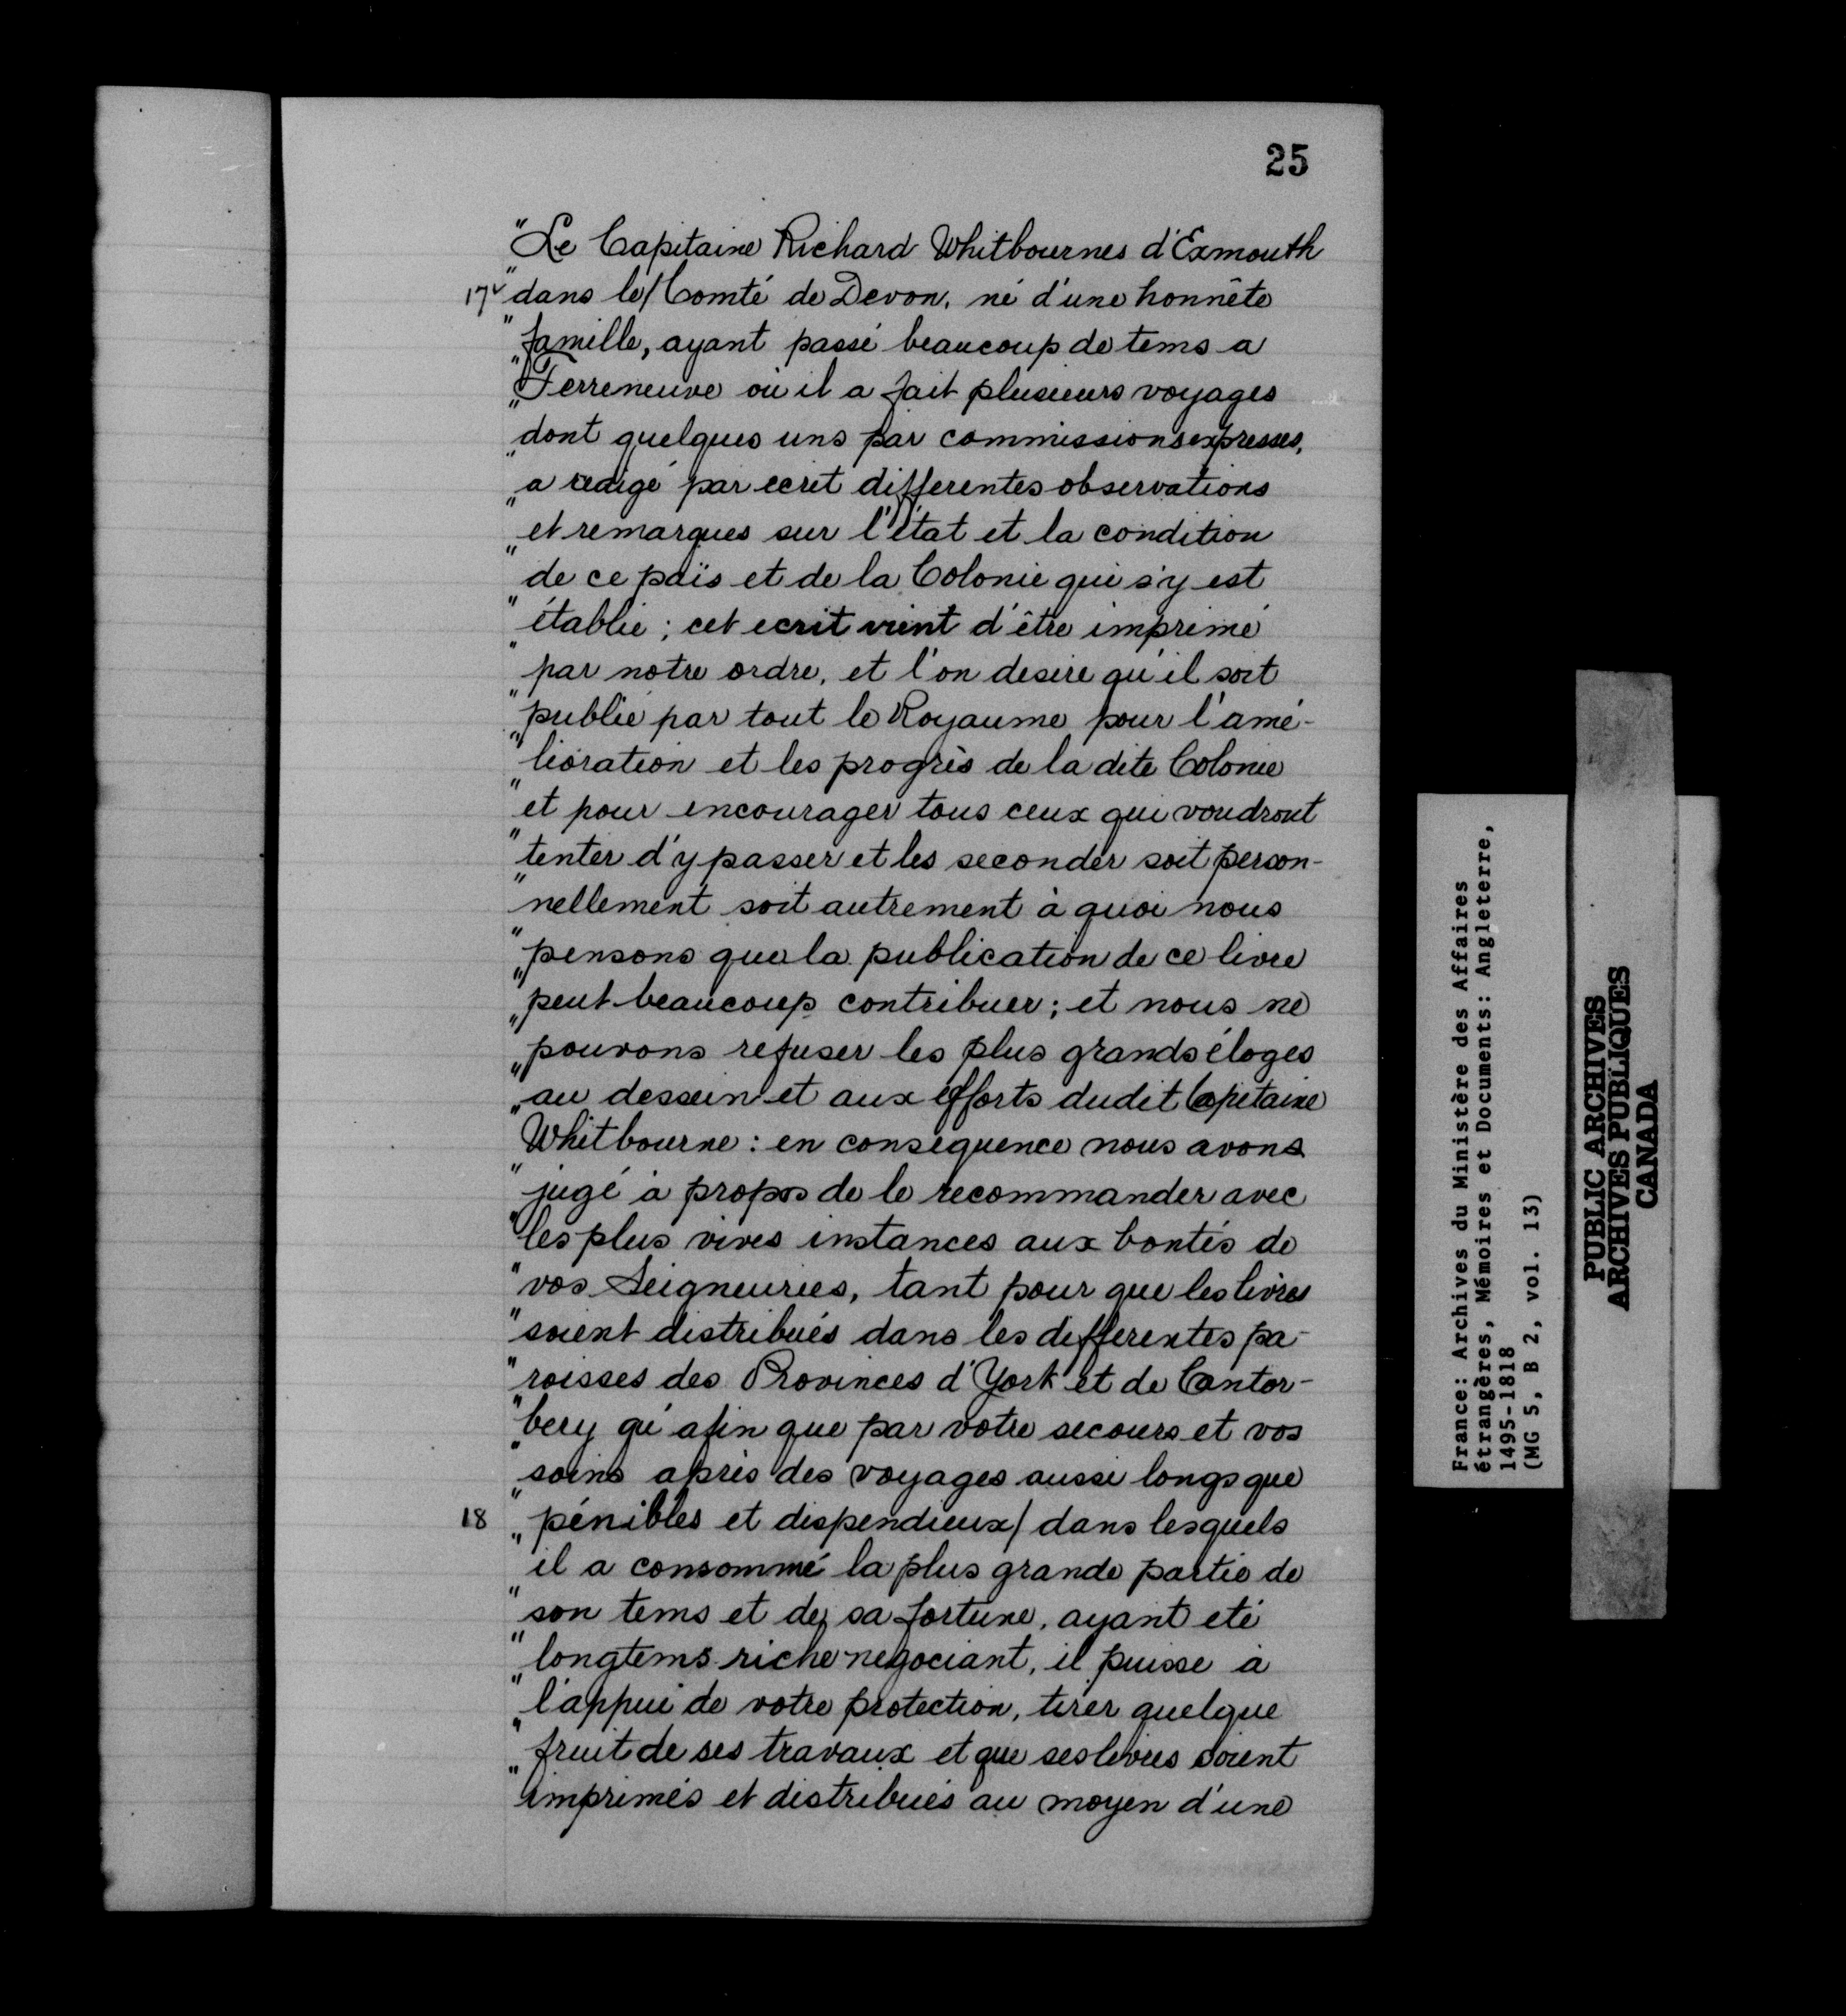 25
"Le Capitaine Richard Whitbournes d'Exmouth
17v "dans le/Comté de Devon, né d'une honnête
"famille, ayant passé beaucoup de tems a
"Terreneuve où il a fait plusieurs voyages
"dont quelques uns par commissions expresses,
"a redigé par ecrit differentes observations
"et remarques sur l'état et la condition
"de ce païs et de la Colonie qui s'y est
"établie ; cet ecrit vient d'être imprimé
"par notre ordre, et l'on desire qu'il soit
"publié par tout le Royaume pour l'amé-
"lioration et les progrès de la dite Colonie
"et pour encourager tous ceux qui voudront
"tenter d'y passer et les seconder soit person-
"nellement soit autrement à quoi nous
"pensons que la publication de ce livre
"peut beaucoup contribuer ; et nous ne
"pouvons refuser les plus grands éloges
"au dessein et aux efforts dudit Capitaine
"Whitbourne : en conséquence nous avons
"jugé à propos de le recommander avec
"les plus vives instances aux bontés de
"vos Seigneuries, tant pour que les livres
"soient distribués dans les differentes pa-
"roisses des Provinces d'York et de Cantor-
"bery qu'afin que par votre secours et vos
"soins après des voyages aussi longs que
18 "pénibles et dispendieux/ dans lesquels
"il a consommé la plus grande partie de
"son tems et de sa fortune, ayant eté
"longtems riche negociant, il puisse à
"l'appui de votre protection, tirer quelque
"fruit de ses travaux et que ses livres soient
"imprimés et distribués au moyen d'une
France: Archives du Ministère des Affaires
étrangères, Mémoires et Documents: Angleterre,
1495-1818
(MG 5, B 2, vol. 13)
PUBLIC ARCHIVES
ARCHIVES PUBLIQUES
CANADA